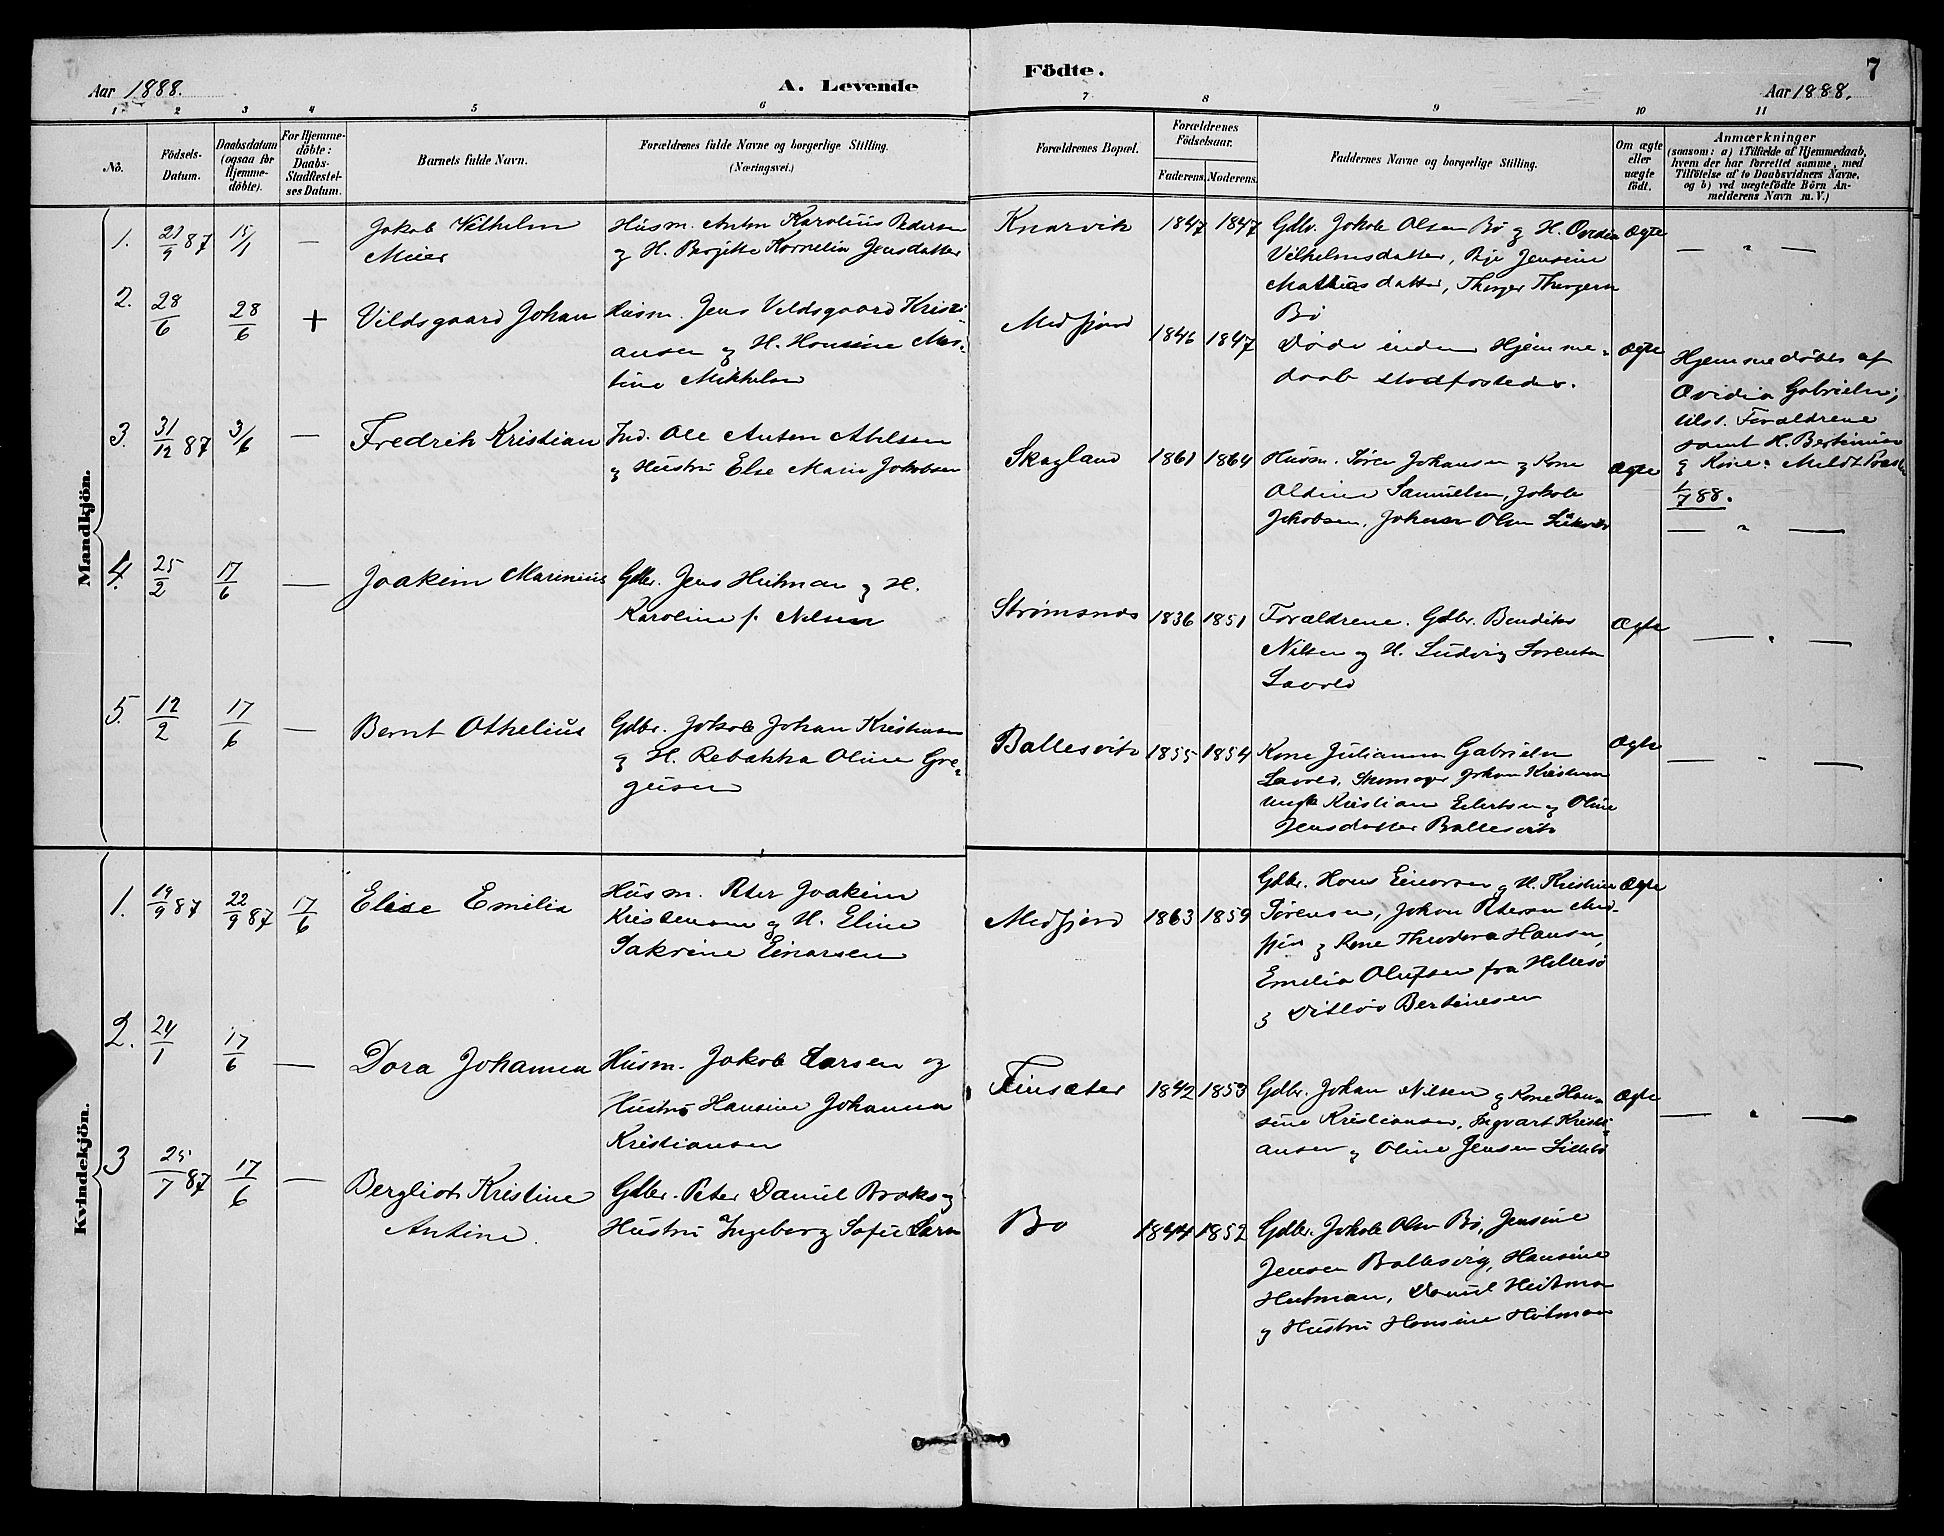 Aar 1888.
A. Levende
Födte.
7
Aar 1888.
1 2 3 4 5 6 7 8 9 10 11
No.
Födsels-
Datum.
Daabsdatum
(ogsaa for
Hjemme-
döbte).
For Hjemme-
döbte:
Daabs-
Stadfæstel-
ses Datum.
Barnets fulde Navn.
Forældrenes fulde Navne og borgerlige Stilling.
(Næringsvei.)
Forældrenes Bopæl.
Forældrenes
Födselsaar.
Faderens. Moderens.
Faddernes Navne og borgerlige Stilling.
Om ægte
eller
uægte
födt.
Anmærkninger
(saasom: a) i Tilfælde af Hjemmedaab,
hvem der har forrettet samme, med
Tilföielse af to Daabsvidners Navne,
og b) ved uægtefödte Börn An-
melderens Navn m. V.)
Mandkjön.
1. 21/9 87 15/1 —
Jakob Vilhelm
Meier
Husm. Anton Karolius Pedersen
og H. Bergitte Kornelia Jensdatter
Knarvik 1847 1847
Gdbr. Jakob Olsen Bø og H. Ovidia
Vilhelmsdatter, Pige Jensine
Mathiasdatter, Thorger Thorgersen
Bø
Ægte — " —
2. 28/6 28/6 +
Vildsgaard Johan
Husm. Jens Vildsgaard Kristi-
ansen og H. Hansine Mar-
tine Mikkelsen
Medfjord 1846 1847
Døde inden Hjemme-
daab stadfæstedes.
Ægte
Hjemmedøbt af
Ovidia Gabrielsen,
tilst. Forældrene
samt H. Bertinius
og Kone. Meldt Præsten
1/7 88.
3. 31/12 87 3/6 —
Fredrik Kristian
Ind. Ole Anton Abelsen
og Hustru Else Marie Jakobsen
Skagland 1861 1864
Husm. Søren Johansen og Kone
Oldine Samuelsen, Jakob
Jakobsen, Johan Olsen
Ægte — " —
4. 25/2 17/6 —
Joakim Marinius
Gdbr. Jens Heitman og H.
Karoline f. Nilsen
Strømsnes 1836 1851
Forældrene. Gdbr. Benditus
Nilsen og H. Ludvig Sørensen
Lavold
Ægte — " —
5. 12/2 17/6 —
Bernt Othelius
Gdbr. Jakob Johan Kristiansen
og H. Rebakka Oline Gre-
gusen
Ballesvik 1855 1854
Kone Julianna Gabrielsen
Lavold, Skomager Johan Kristiansen
Ungk Kristian Eilertsen og Oline
Jensdatter Ballesvik
Ægte — " —
Kvindekjön.
1. 19/9 87 22/9 87 17/6
Elise Emilie
Husm. Peter Joakim
Kristensen og H. Eline
Sakrine Einarsen
Medfjord 1863 1859
Gdbr. Hans Einarsen og H. Kristine
Sørensen, Johan Petersen Med-
fjord og Kone Theodora Hansen,
Emelia Olufsen fra Hillesø
og Ditløv Bertinesen
Ægte
2. 24/1 17/6 —
Dora Johanna
Husm. Jakob Larsen og
Hustru Hansine Johanna
Kristiansen
Finsæter 1842 1853
Gdbr. Johan Nilsen og Kone Han-
sine Kristiansen, Ingvart Kristi-
ansen og Oline Jensen Lillebø
Ægte — " —
3 25/7 87 17/6 —
Bergliot Kristine
Antine.
Gdbr. Peter Daniel Broks og
Hustru Ingeborg Sofie Larsen
Bø 1844 1852
Gdbr. Jakob Olsen Bø, Jensine
Jensen Ballesvig, Hansine
Heitman, Daniel Heitman
og Hustru Hansine Heitman